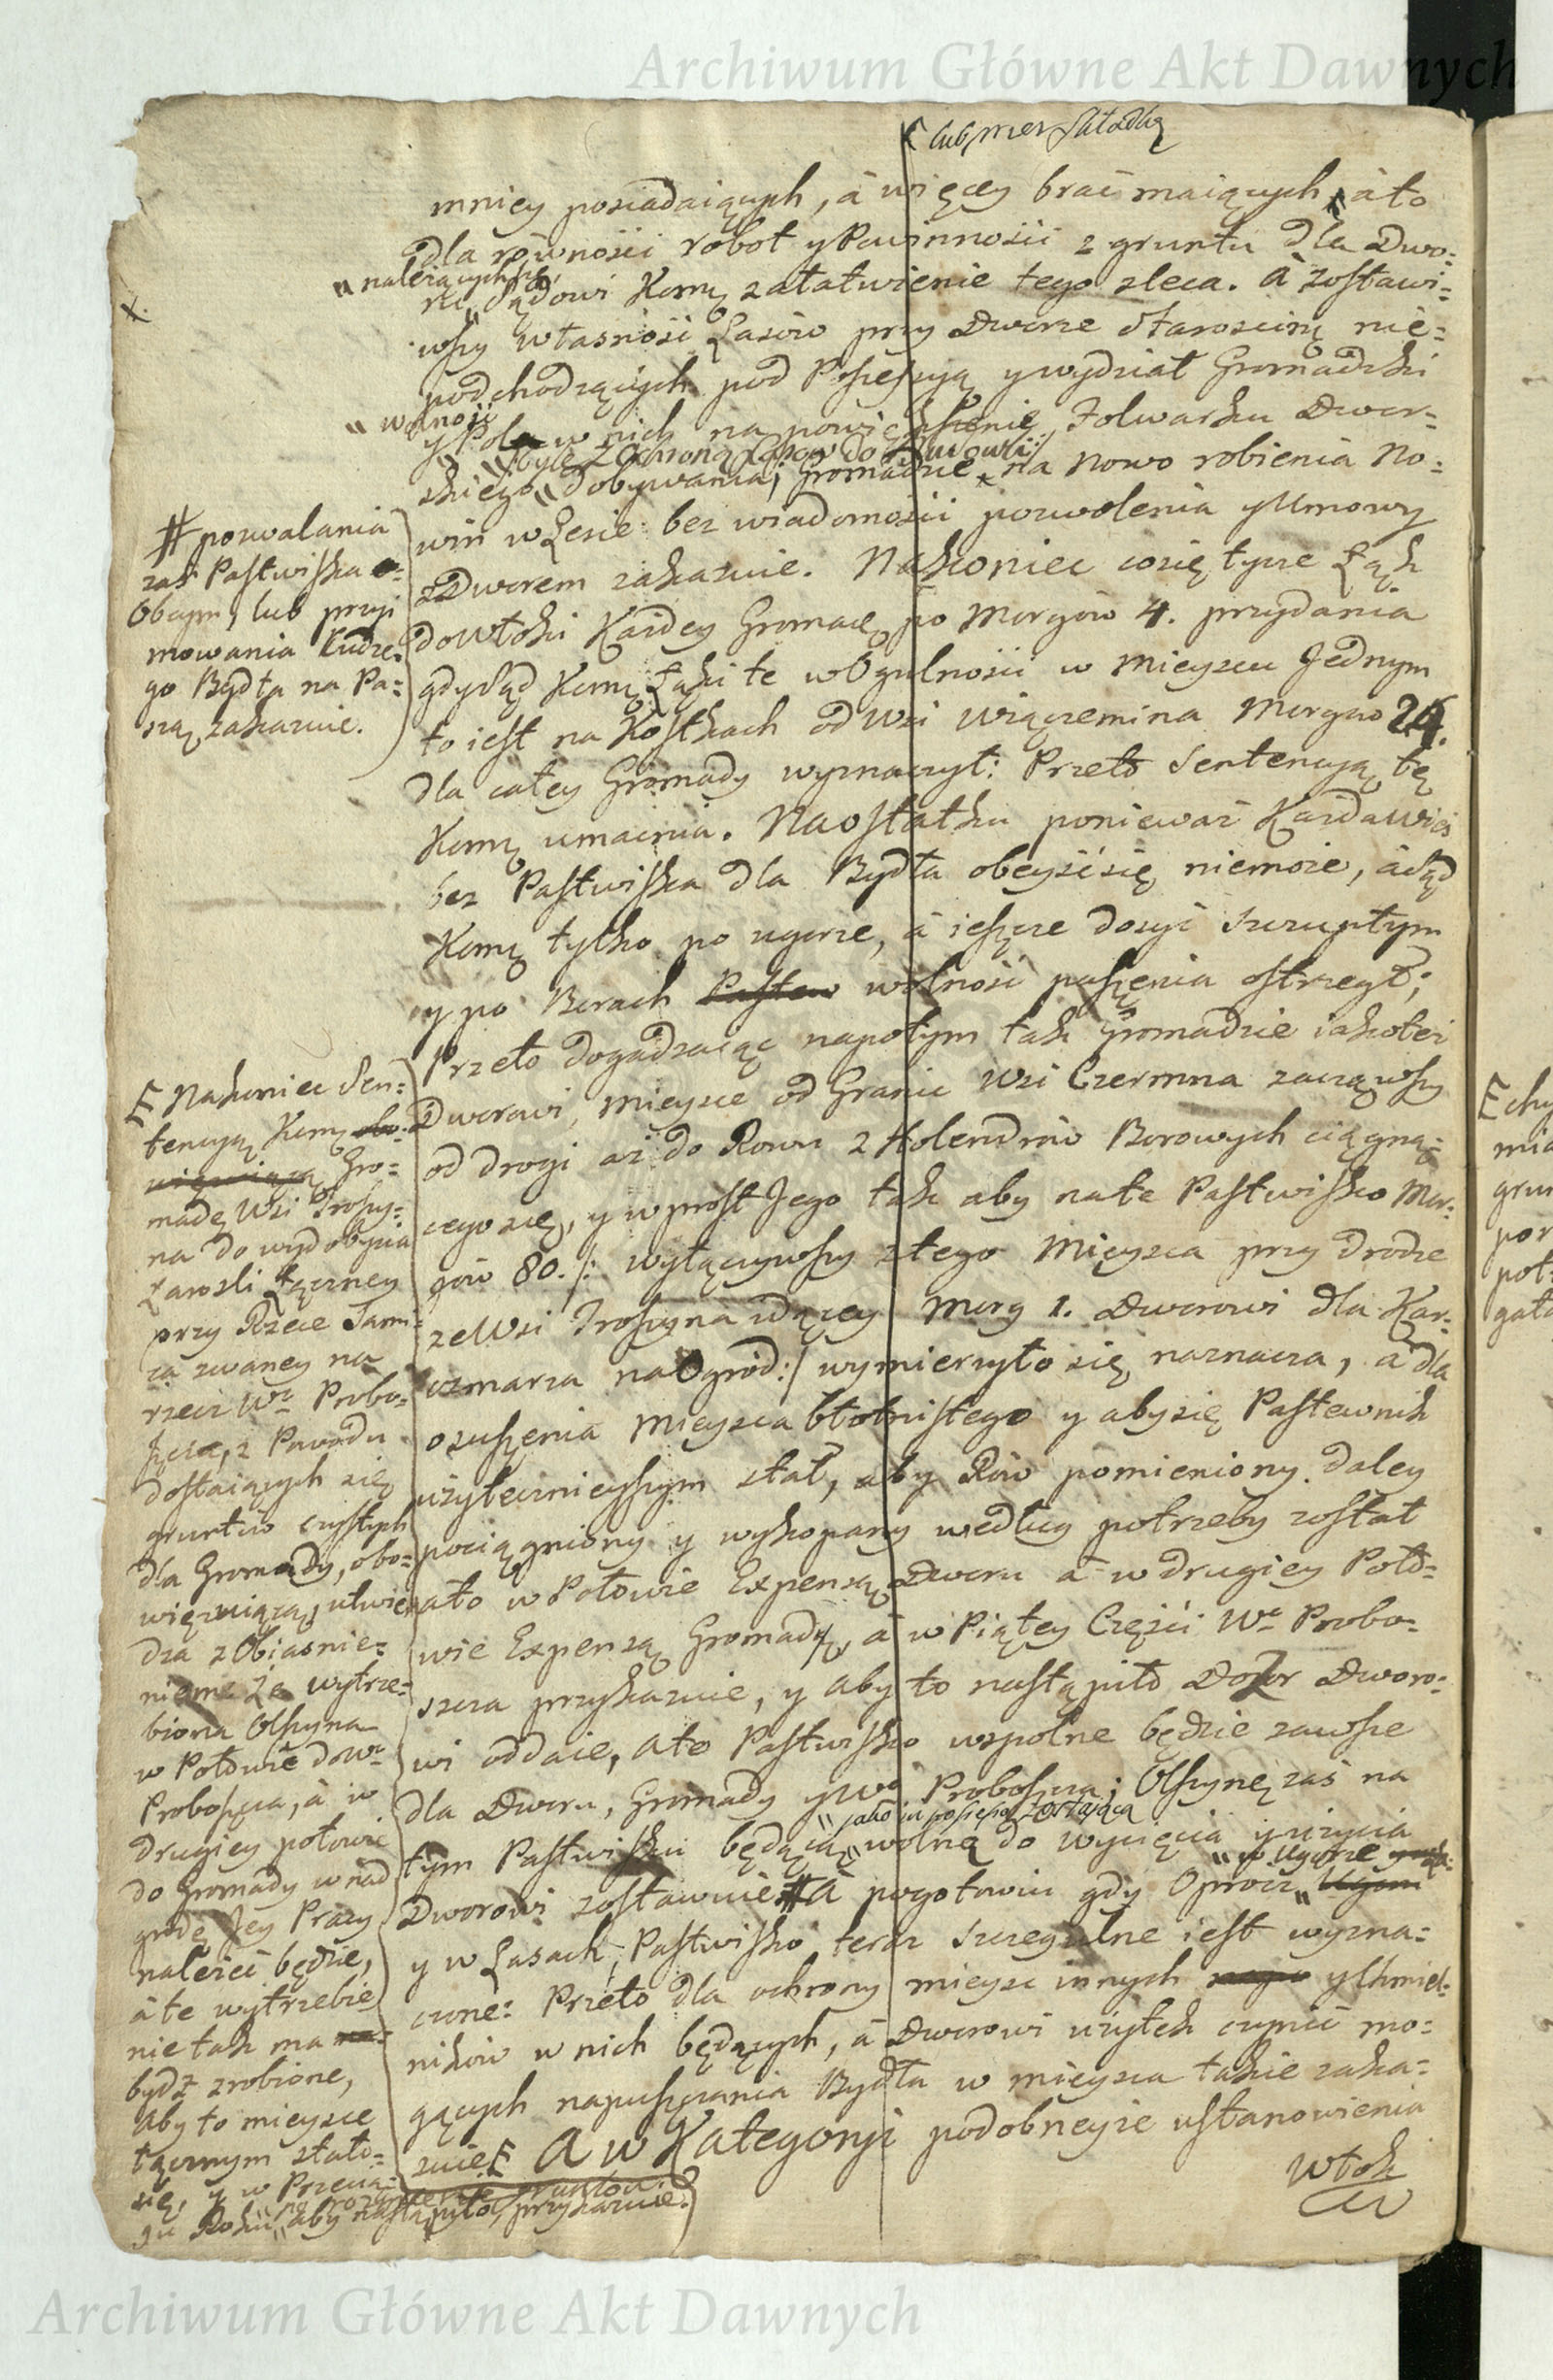 Archiwum Główne Akt Dawnych
lub przez
mniey posiadaiących, á więcey brać maiących, áto
dla równości robot y Powinności z gruntu dla Dwo-
należących się,
ru, Sądowi Komę załatwienie tego zleca. A zostawi-
wszy własność Lasów przy Dworze Starościną nie-
podchodzących pod Possessyą y wydział Gromadzki
wolność
y Pola w nich na powiększenie Folwarku Dwor-
/byle z ochroną Lasów do Budowli:/
skiego dobywania; Gromadzie na nowo robienia No-
win w Lesie bez wiadomości pozwolenia y Umowy
z Dworem zakazuie. Nakoniec co się tycze Łąk
do Włoki Każdey Gromacę po Morgów 4. przydania
gdy Sąd Komę Łąki te w Ogulności w mieyscu Jednym
to iest na Kostkach od Wsi Wiączemina Morgow 24.
dla całey Gromady wyznaczył: Przeto Sentencyą tę
Komę umacnia. Naostatku ponieważ Każda Wieś
bez Pastwiska dla Bydła obeyść się niemoże, á Sąd
Komę tylko po ugorze, á ieszcze dosyć szczupłym
y po Borach Pastew wolność paszenia ostrzegł;
Przeto dogadzaiąc napotym tak Gromadzie iakoteż
Dworowi, mieysce od Granic Wsi Czermna zacząwszy
od drogi aż do Rowu z Holendrów Borowych ciągną-
cego się, y wprost Jego tak aby na te Pastwisko Mor-
gów 80. /: wyłączywszy z tego Mieysca przy drodze
ze Wsi Troszyna idącey Morg 1. Dworowi dla Kar-
czmarza na Ogród:/ wymierzyło się naznacza, a dla
osuszenia Mieysca błotnistego y aby się Pastewnik
użytecznieyszym stał, aby Rów pomieniony daley
pociągniony y wykopany według potrzeby został
áto w Połowie Expensą Dworu á w drugiey Poło-
wie Expensą Gromady, á w Piątey Części We Probo-
szcza przykazuie, y aby to nastąpiło Dozor Dworo-
wi oddaie, áte Pastwisko wspolne będzie zawsze
dla Dworu, Gromady y We Proboszcza; Olszynę zaś na
jako in possessyi zostającą
tym Pastwisku będącą wolną do wycięcia y użycia
w Ugorze
Dworowi zostawuie # A pogotowiu gdy Oprócz Ugoru
y w Lasach, Pastwisko teraz szczegulne iest wyzna-
czone: Przeto dla ochrony mieysc innych y Chmiel-
ników w nich będących, á Dworowi użytek czynić mo-
gących napuszczania Bydła w mieysca takie zaka-
zuie. A w Kategoryi podobneyże ustanowienia
Włok
# pozwalania
zaś Pastwiska
Obcym, lub przyi-
mowania Cudze-
go Bydła na Pa-
szą zakazuie.
Nakoniec Sen-
tencyą Komę obo-
wiązuiącą Gro-
madę Wsi Troszy-
na do wydobycia
Zarosli Łączney
przy Rzece Sami-
ca zwaney na
rzecz We Probo-
szcza, z Powodu
dostaiących się
gruntów czystych
dla Gromady, obo-
więzuiącą, utwier-
dza z Obiasnie-
niem że wytrze-
biona Olszyna
w Połowie do We
Proboszcza, á w
drugiey połowie
do Gromady w nad-
grodę Jey Pracy
należeć będzie,
áte wytrzebie-
nie tak ma
bydź zrobione,
aby to mieysce
łącznym stało-
się, y w Przecią-
gu Roku aby nastąpiło, przykazuie.
Archiwum Główne Akt Dawnych